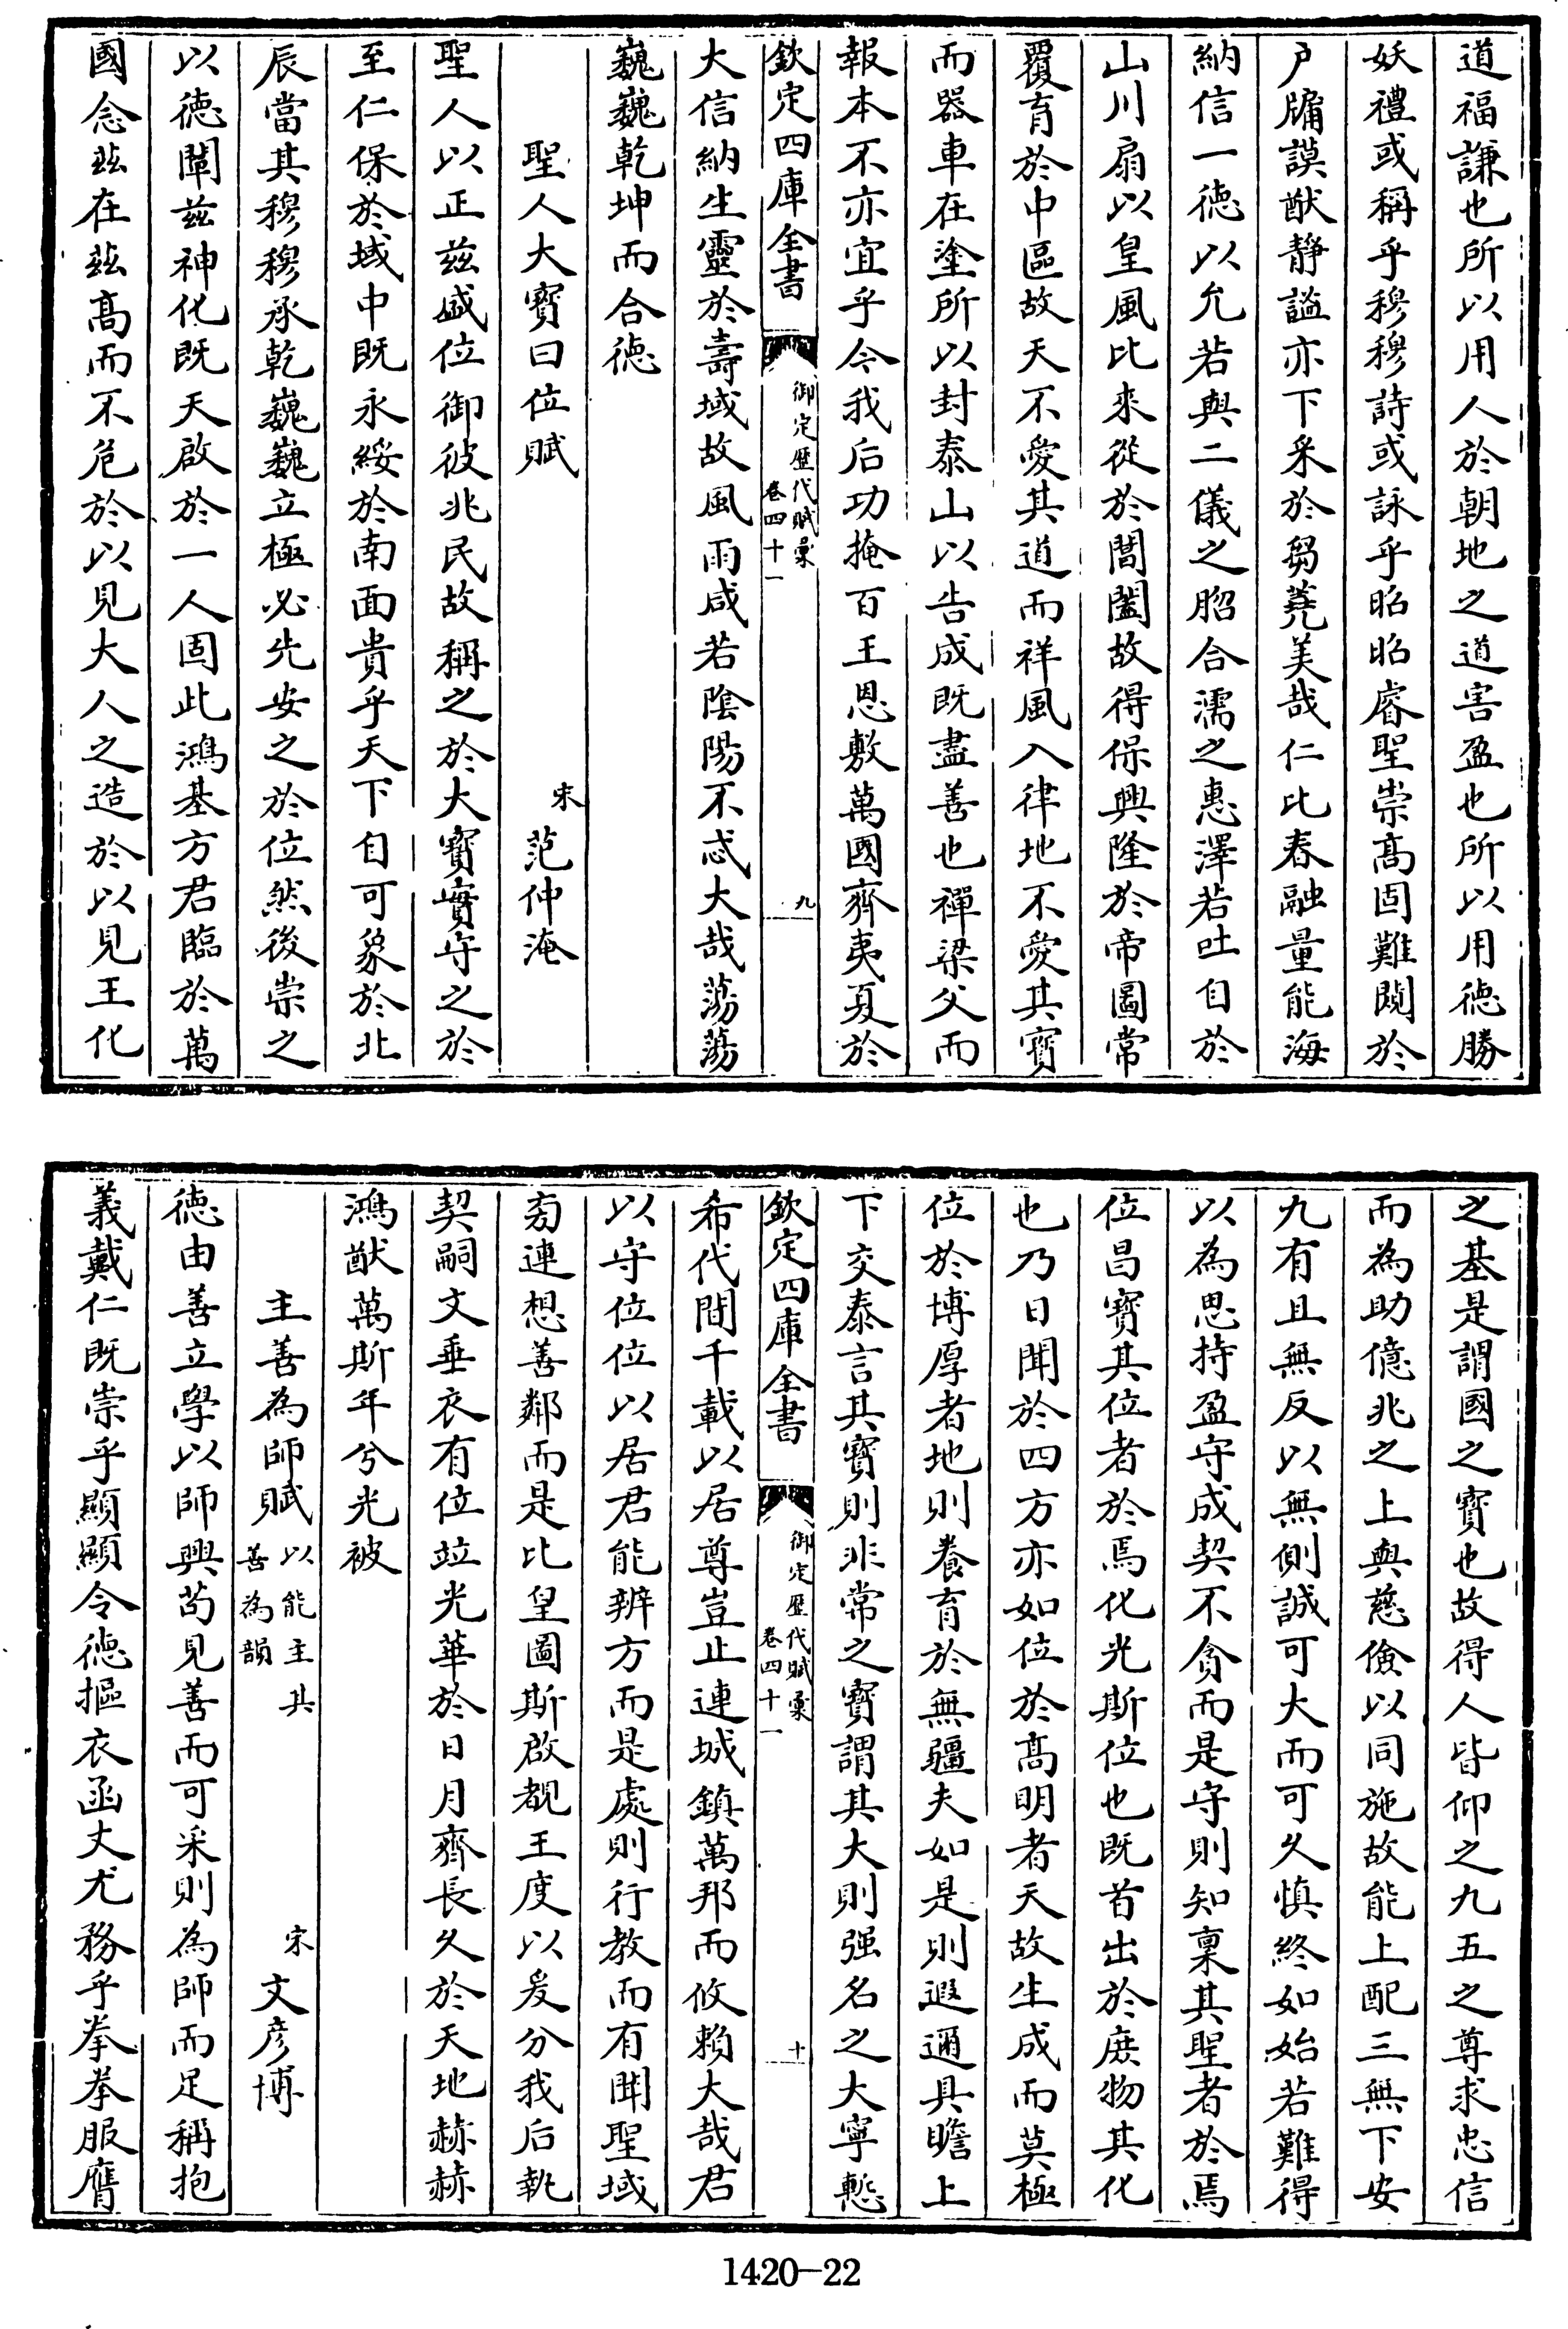 道福謙也所以用人於朝地之道害盈也所以用德勝
妖禮或稱乎穆穆詩或詠乎昭昭睿聖崇高固難闚於
戶牖謨猷靜謐亦下采於芻蕘美哉仁比春融量能海
納信一德以允若與二儀之脗合濡之惠澤若吐自於
山川扇以皇風比來從於閶闔故得保興隆於帝圖常
覆育於中區故天不愛其道而祥風入律地不愛其寶
而器車在塗所以封泰山以告成既盡善也禪梁父而
報本不亦宜乎今我后功掩百王恩敷萬國齊夷夏於
欽定四庫全書
御定歷代賦彙
卷四十一
九
大信納生靈於壽域故風雨咸若陰陽不忒大哉蕩蕩
巍巍乾坤而合德
聖人大寶曰位賦
宋 范仲淹
聖人以正茲盛位御彼兆民故稱之於大寶實守之於
至仁保於域中既永綏於南面貴乎天下自可象於北
辰當其穆穆承乾巍巍立極必先安之於位然後崇之
以德闡茲神化既天啟於一人固此鴻基方君臨於萬
國念茲在茲高而不危於以見大人之造於以見王化
之基是謂國之寶也故得人皆仰之九五之尊求忠信
而為助億兆之上與慈儉以同施故能上配三無下安
九有且無反以無側誠可大而可久慎終如始若難得
以為思持盈守成契不貪而是守則知稟其聖者於焉
位昌寶其位者於焉化光斯位也既首出於庶物其化
也乃日聞於四方亦如位於高明者天故生成而莫極
位於博厚者地則養育於無疆夫如是則遐邇具瞻上
下交泰言其寶則非常之寶謂其大則强名之大寧慙
欽定四庫全書
御定歷代賦彙
卷四十一
十
希代間千載以居尊豈止連城鎮萬邦而攸賴大哉君
以守位位以居君能辨方而是處則行教而有聞聖域
旁連想善鄰而是比皇圖斯啟覩王度以爰分我后執
契嗣文垂衣有位竝光華於日月齊長久於天地赫赫
鴻猷萬斯年兮光被
主善為師賦
以能主其
善為韻
宋 文彥博
德由善立學以師興茍見善而可采則為師而足稱抱
義戴仁既崇乎顯顯令德摳衣函丈尤務乎拳拳服膺
1420-22